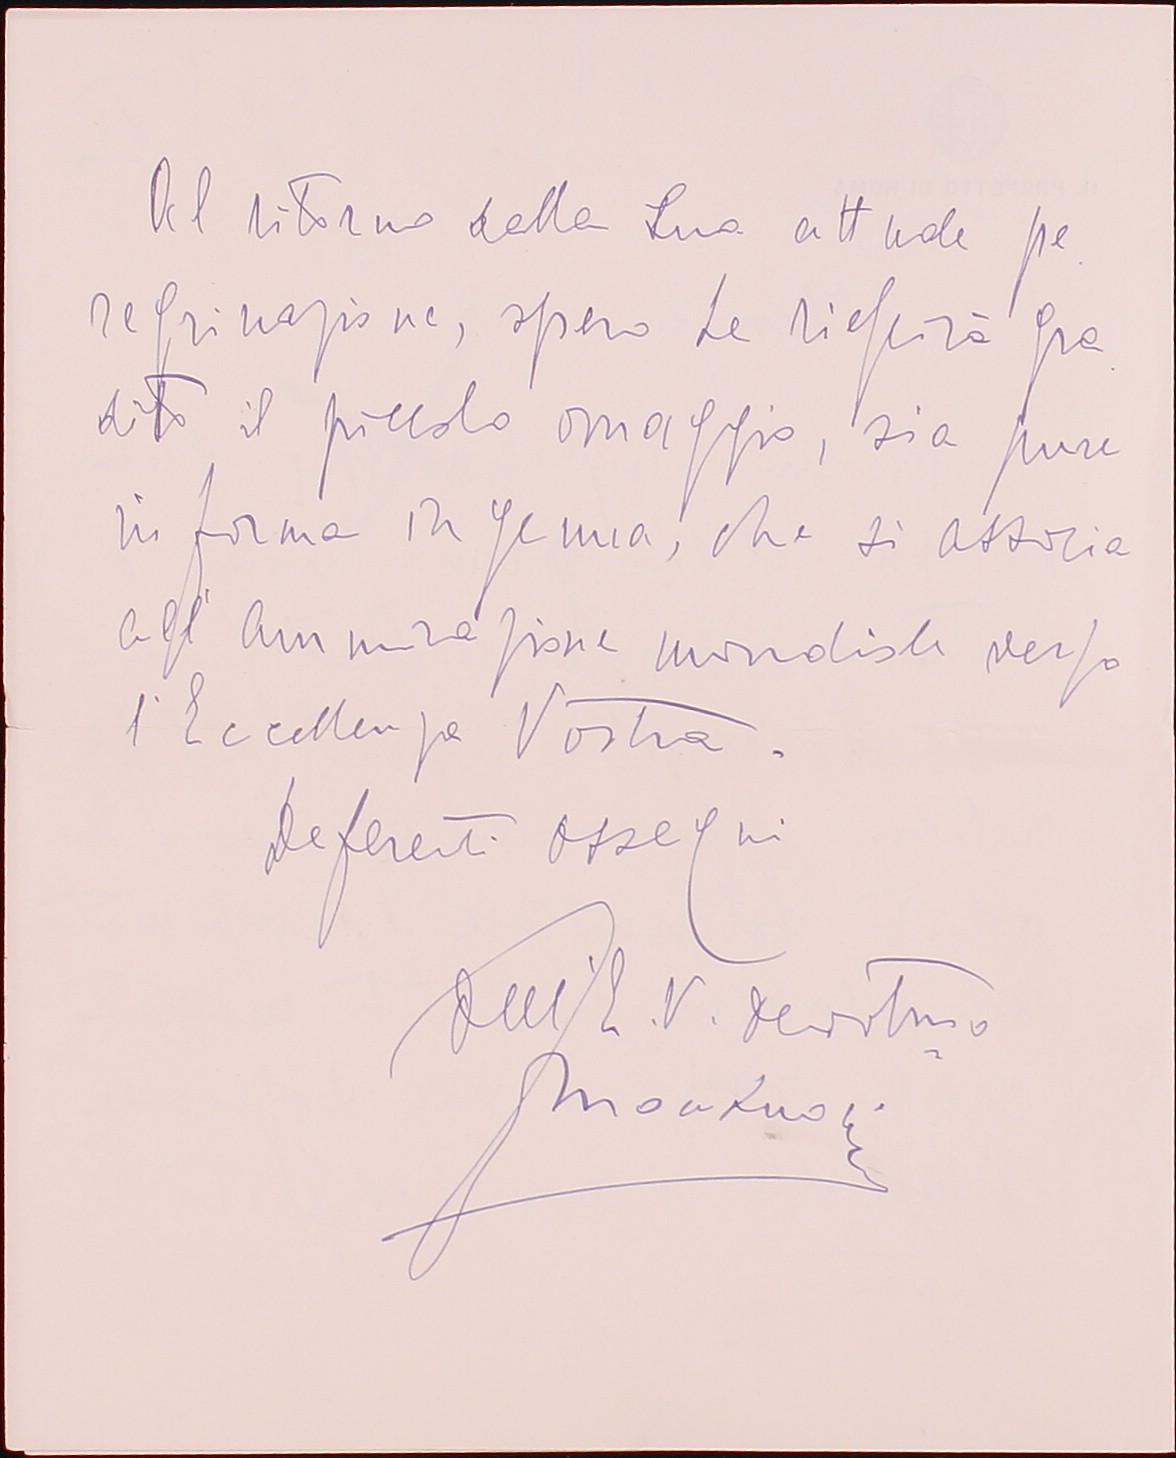 Al ritorno dalla Sua attuale pe
regrinazione, spero Le riescirà gra
dito il piccolo omaggio, sia pure
in forma ingenua, che si associa
all'ammirazione mondiale verso
l'Eccellenza Vostra.
Deferenti ossequi
dell'E.V. devotmo
IL PREFETTO DI ROMA